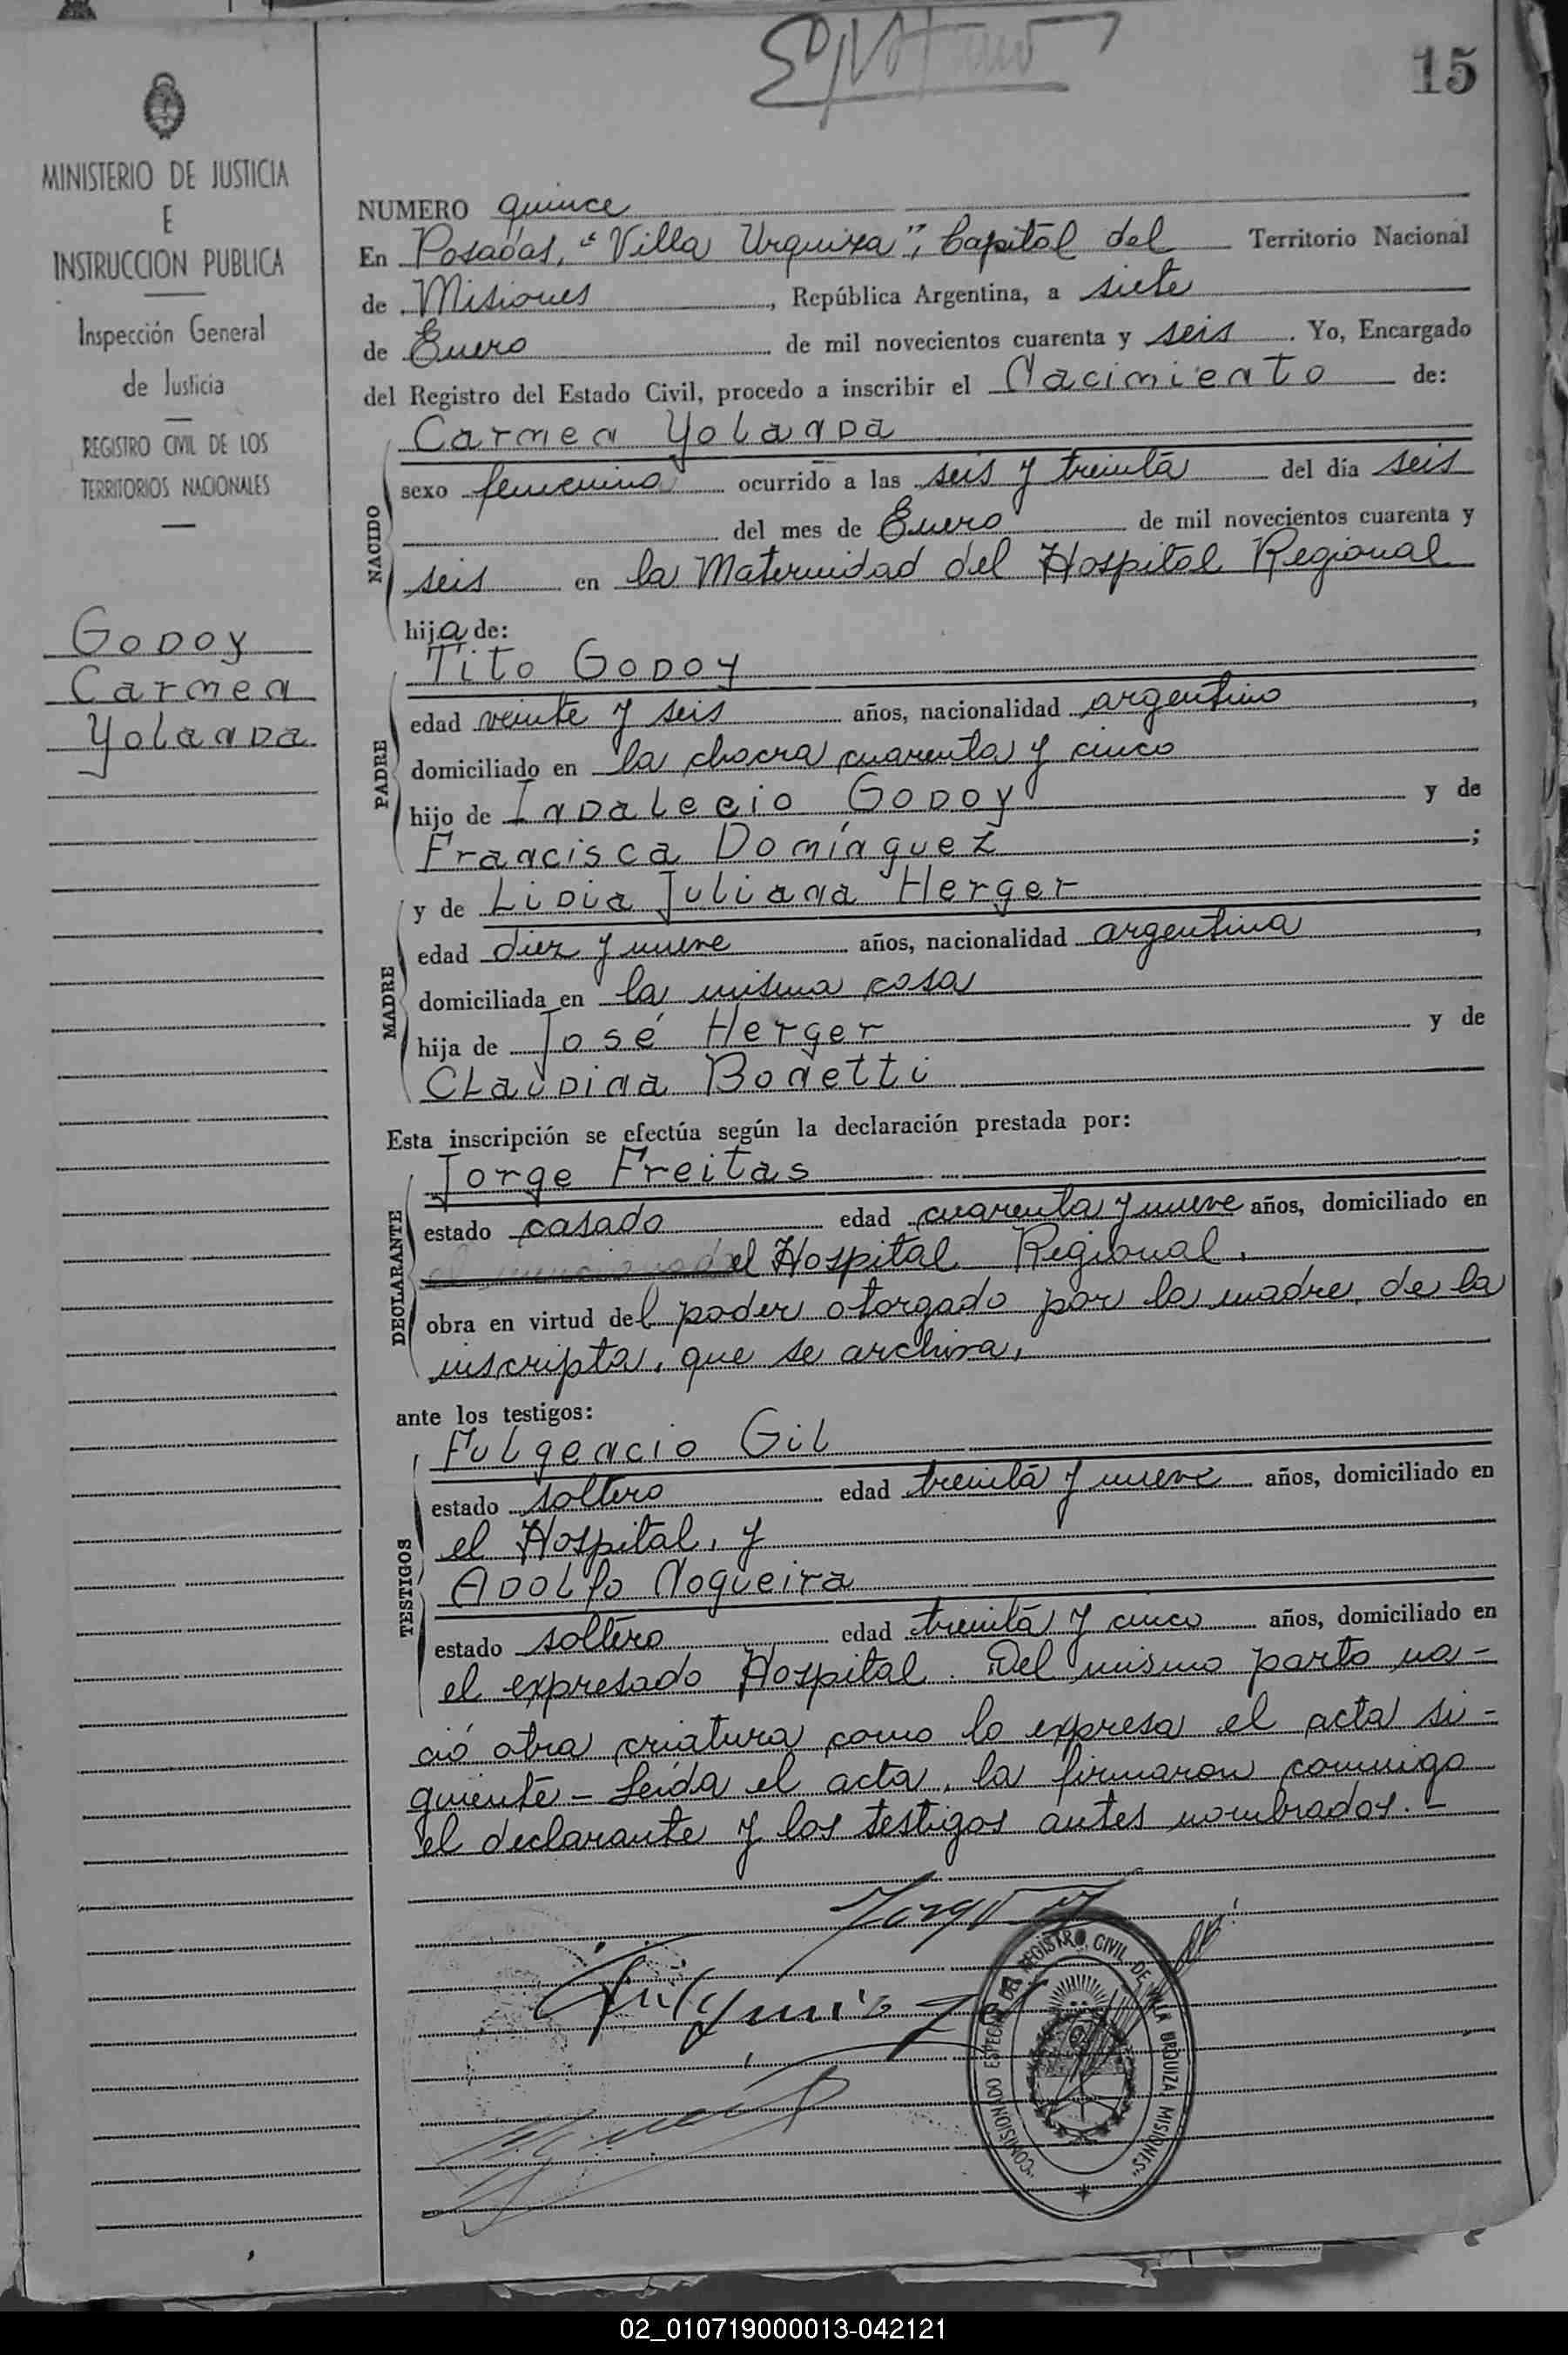 15
MINISTERIO DE JUSTICIA
E
INSTRUCCION PUBLICA
Inspección General
de Justicia
REGISTRO CIVIL DE LOS
TERRITORIOS NACIONALES
Godoy
Carmen
Yolanda
NUMERO quince
En Posadas, "Villa Urquiza", Capital del Territorio Nacional
de Misiones, República Argentina, a siete
de Enero de mil novecientos cuarenta y seis. Yo, Encargado
del Registro del Estado Civil, procedo a inscribir el Nacimiento de:
NACIDO
Carmen Yolanda
sexo femenino ocurrido a las seis y treinta del día seis
del mes de Enero de mil novecientos cuarenta y
seis en la Maternidad del Hospital Regional
hija de:
PADRE
Tito Godoy
edad veinte y seis años, nacionalidad argentino,
domiciliado en la chacra cuarenta y cinco
hijo de Indalecio Godoy y de
Francisca Domínguez;
MADRE
y de Lidia Juliana Herger
edad diez y nueve años, nacionalidad argentina,
domiciliada en la misma casa
hija de José Herger y de
Claudina Bonetti
Esta inscripción se efectúa según la declaración prestada por:
DECLARANTE
Jorge Freitas
estado casado edad cuarenta y nueve años, domiciliado en
el Hospital Regional.
obra en virtud del poder otorgado por la madre de la
inscripta, que se archiva,
ante los testigos:
TESTIGOS
Fulgencio Gil
estado soltero edad treinta y nueve años, domiciliado en
el Hospital, y
Adolfo Nogueira
estado soltero edad treinta y cinco años, domiciliado en
el expresado Hospital. Del mismo parto na-
ció otra criatura como lo expresa el acta si-
guiente - Leída el acta, la firmaron conmigo
el declarante y los testigos antes nombrados. -
"COMISIONADO ESPECIAL DEL REGISTRO CIVIL DE VILLA URQUIZA MISIONES"
02_010719000013-042121